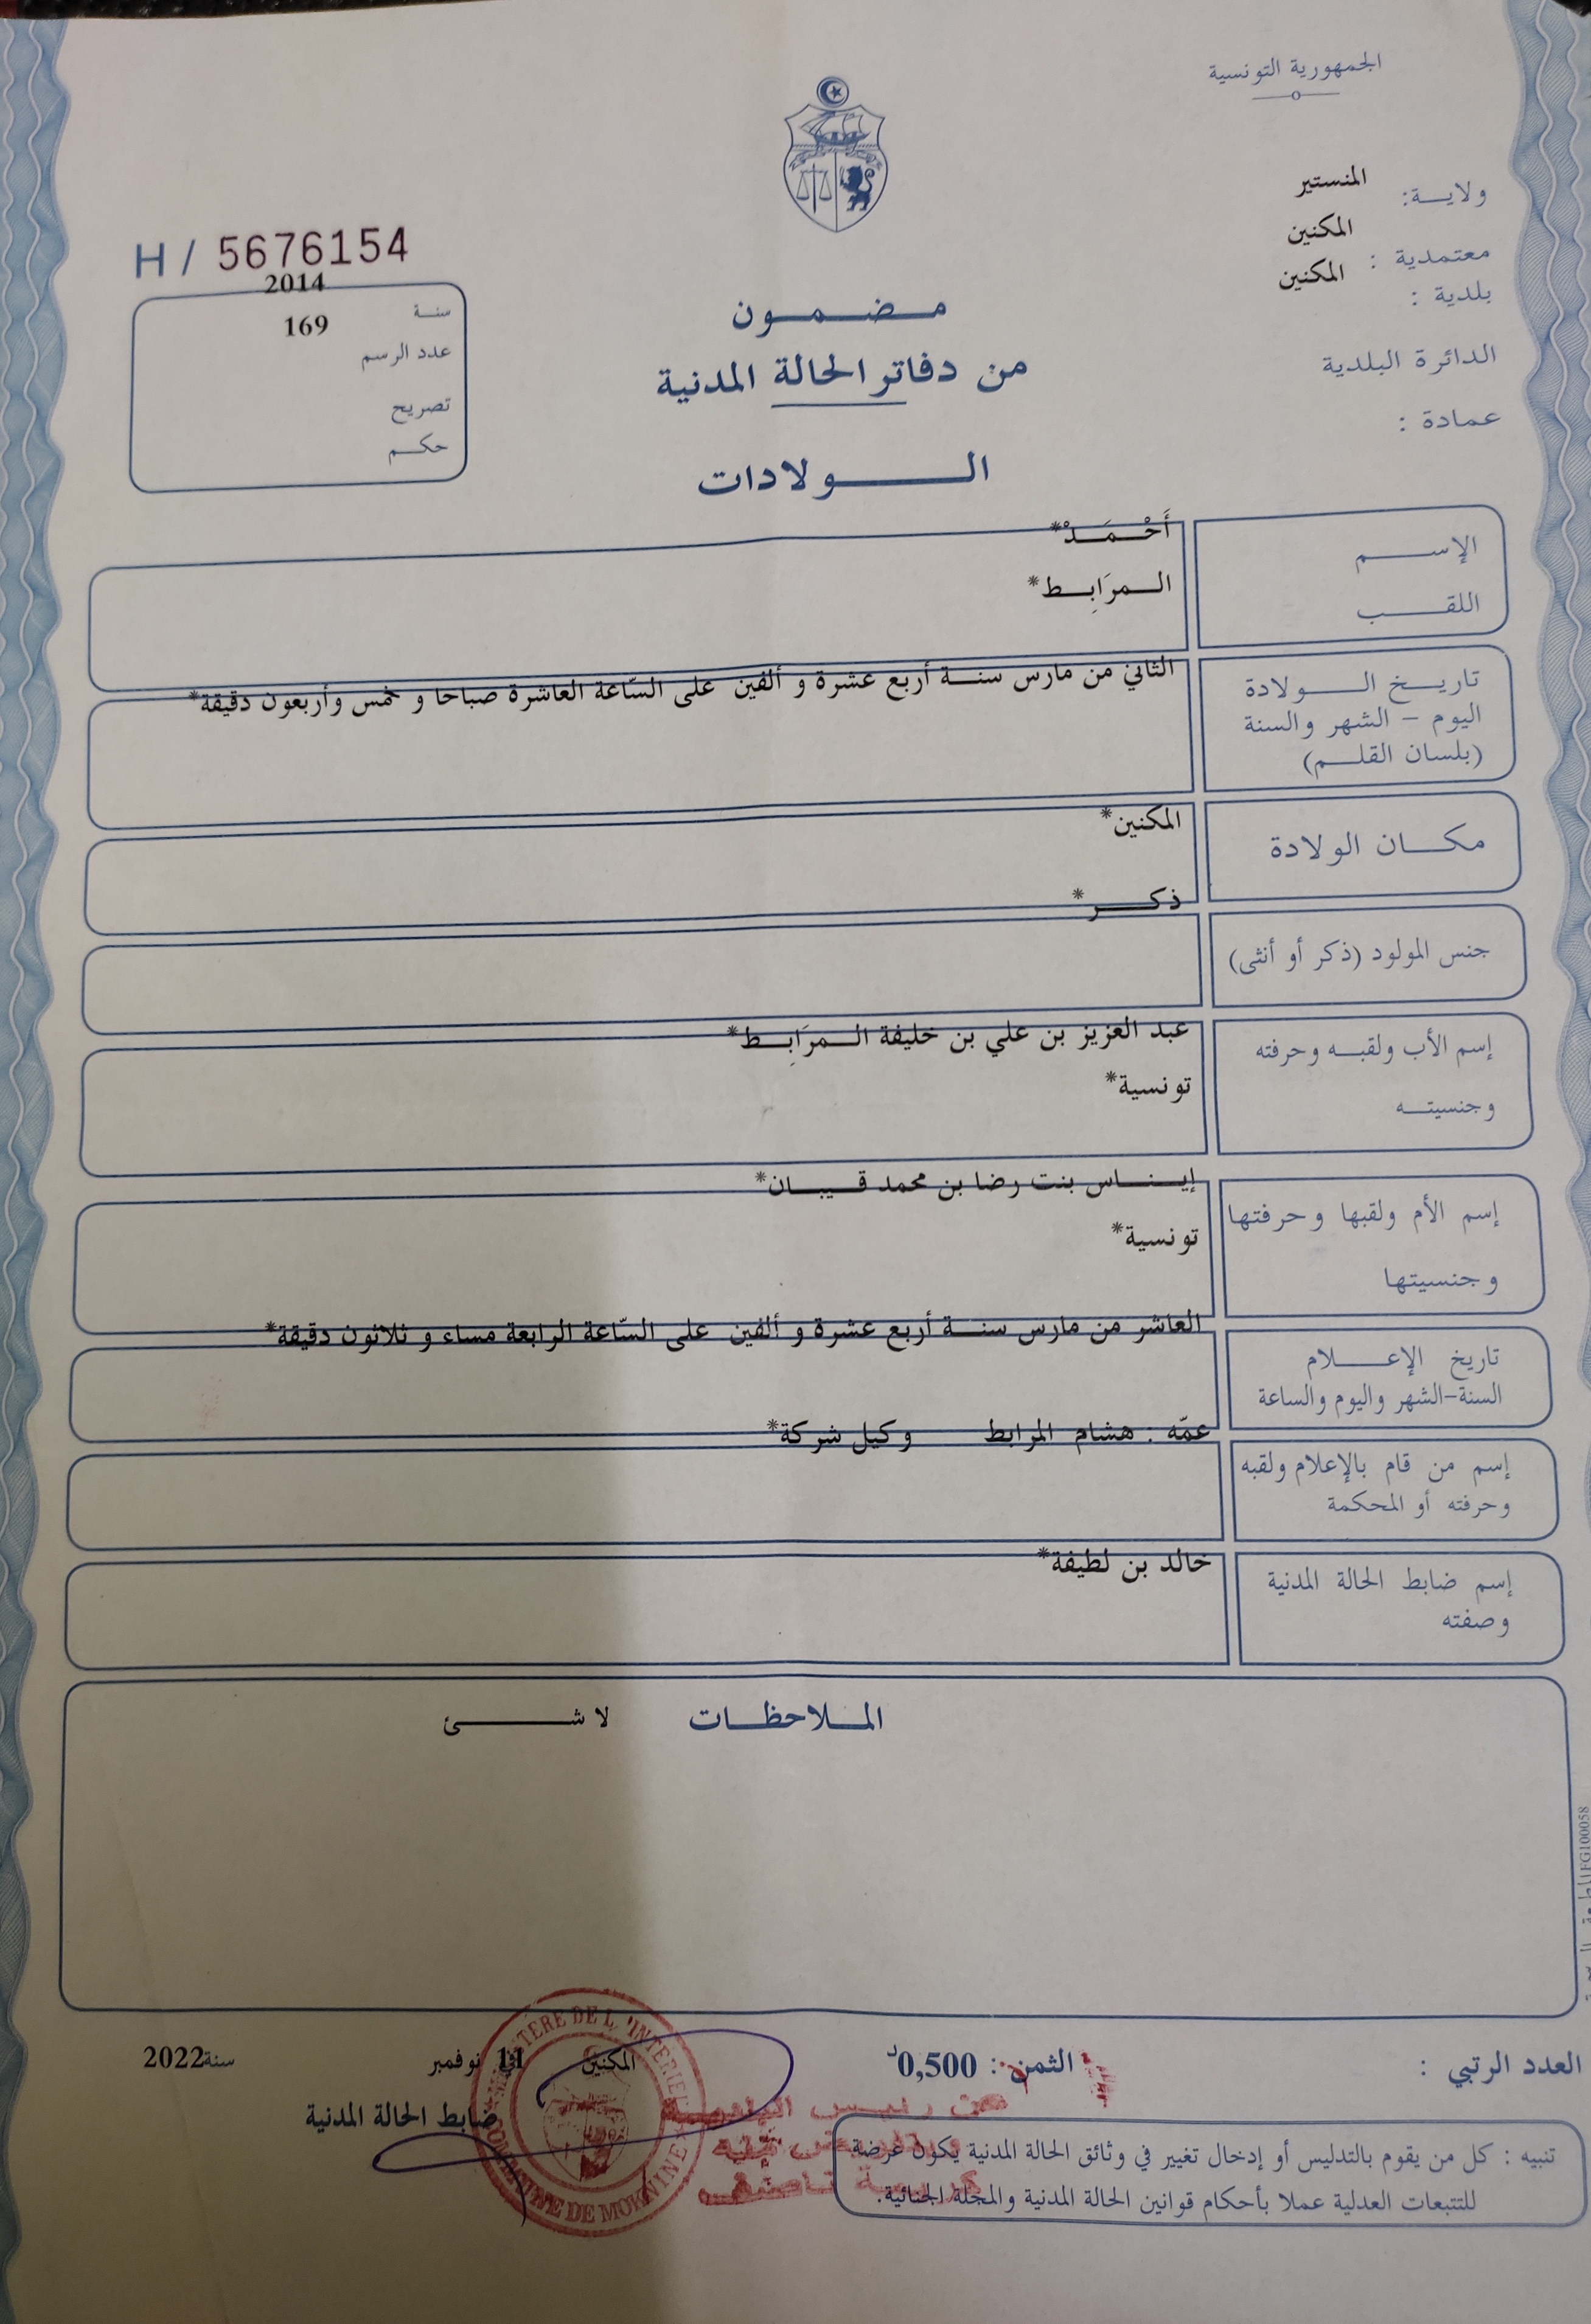 الجمهورية التونسية
ولاية: المنستير
معتمدية : المكنين
بلدية : المكنين
الدائرة البلدية
عمادة :
H / 5676154
سنة 2014
عدد الرسم 169
تصريح
حكم
مضمون
من دفاتر الحالة المدنية
الولادات
الإسم أَحْمَدْ*
اللقب المرَابِط*
تاريخ الولادة
اليوم - الشهر والسنة
(بلسان القلم)
الثاني من مارس سنة أربع عشرة و ألفين على السّاعة العاشرة صباحا و خمس وأربعون دقيقة*
مكان الولادة المكنين*
جنس المولود (ذكر أو أنثى) ذكر*
إسم الأب ولقبه وحرفته عبد العزيز بن علي بن خليفة المرَابِط*
وجنسيته تونسية*
إسم الأم ولقبها وحرفتها إيناس بنت رضا بن محمد قيبان*
وجنسيتها تونسية*
تاريخ الإعلام
السنة-الشهر واليوم والساعة
العاشر من مارس سنة أربع عشرة و ألفين على السّاعة الرابعة مساء و ثلاثون دقيقة*
إسم من قام بالإعلام ولقبه
وحرفته أو المحكمة
عمّه : هشام المرابط وكيل شركة*
إسم ضابط الحالة المدنية
وصفته
خالد بن لطيفة*
الملاحظات لا شئ
العدد الرتبي :
الثمن : 0,500د
المكنين في 11 نوفمبر سنة 2022
ضابط الحالة المدنية
عن رئيس البلدية
تنبيه : كل من يقوم بالتدليس أو إدخال تغيير في وثائق الحالة المدنية يكون عرضة
للتتبعات العدلية عملا بأحكام قوانين الحالة المدنية والمجلة الجنائية.
MINISTERE DE L'INTERIEUR
COMMUNE DE MOKNINE
1FG100058